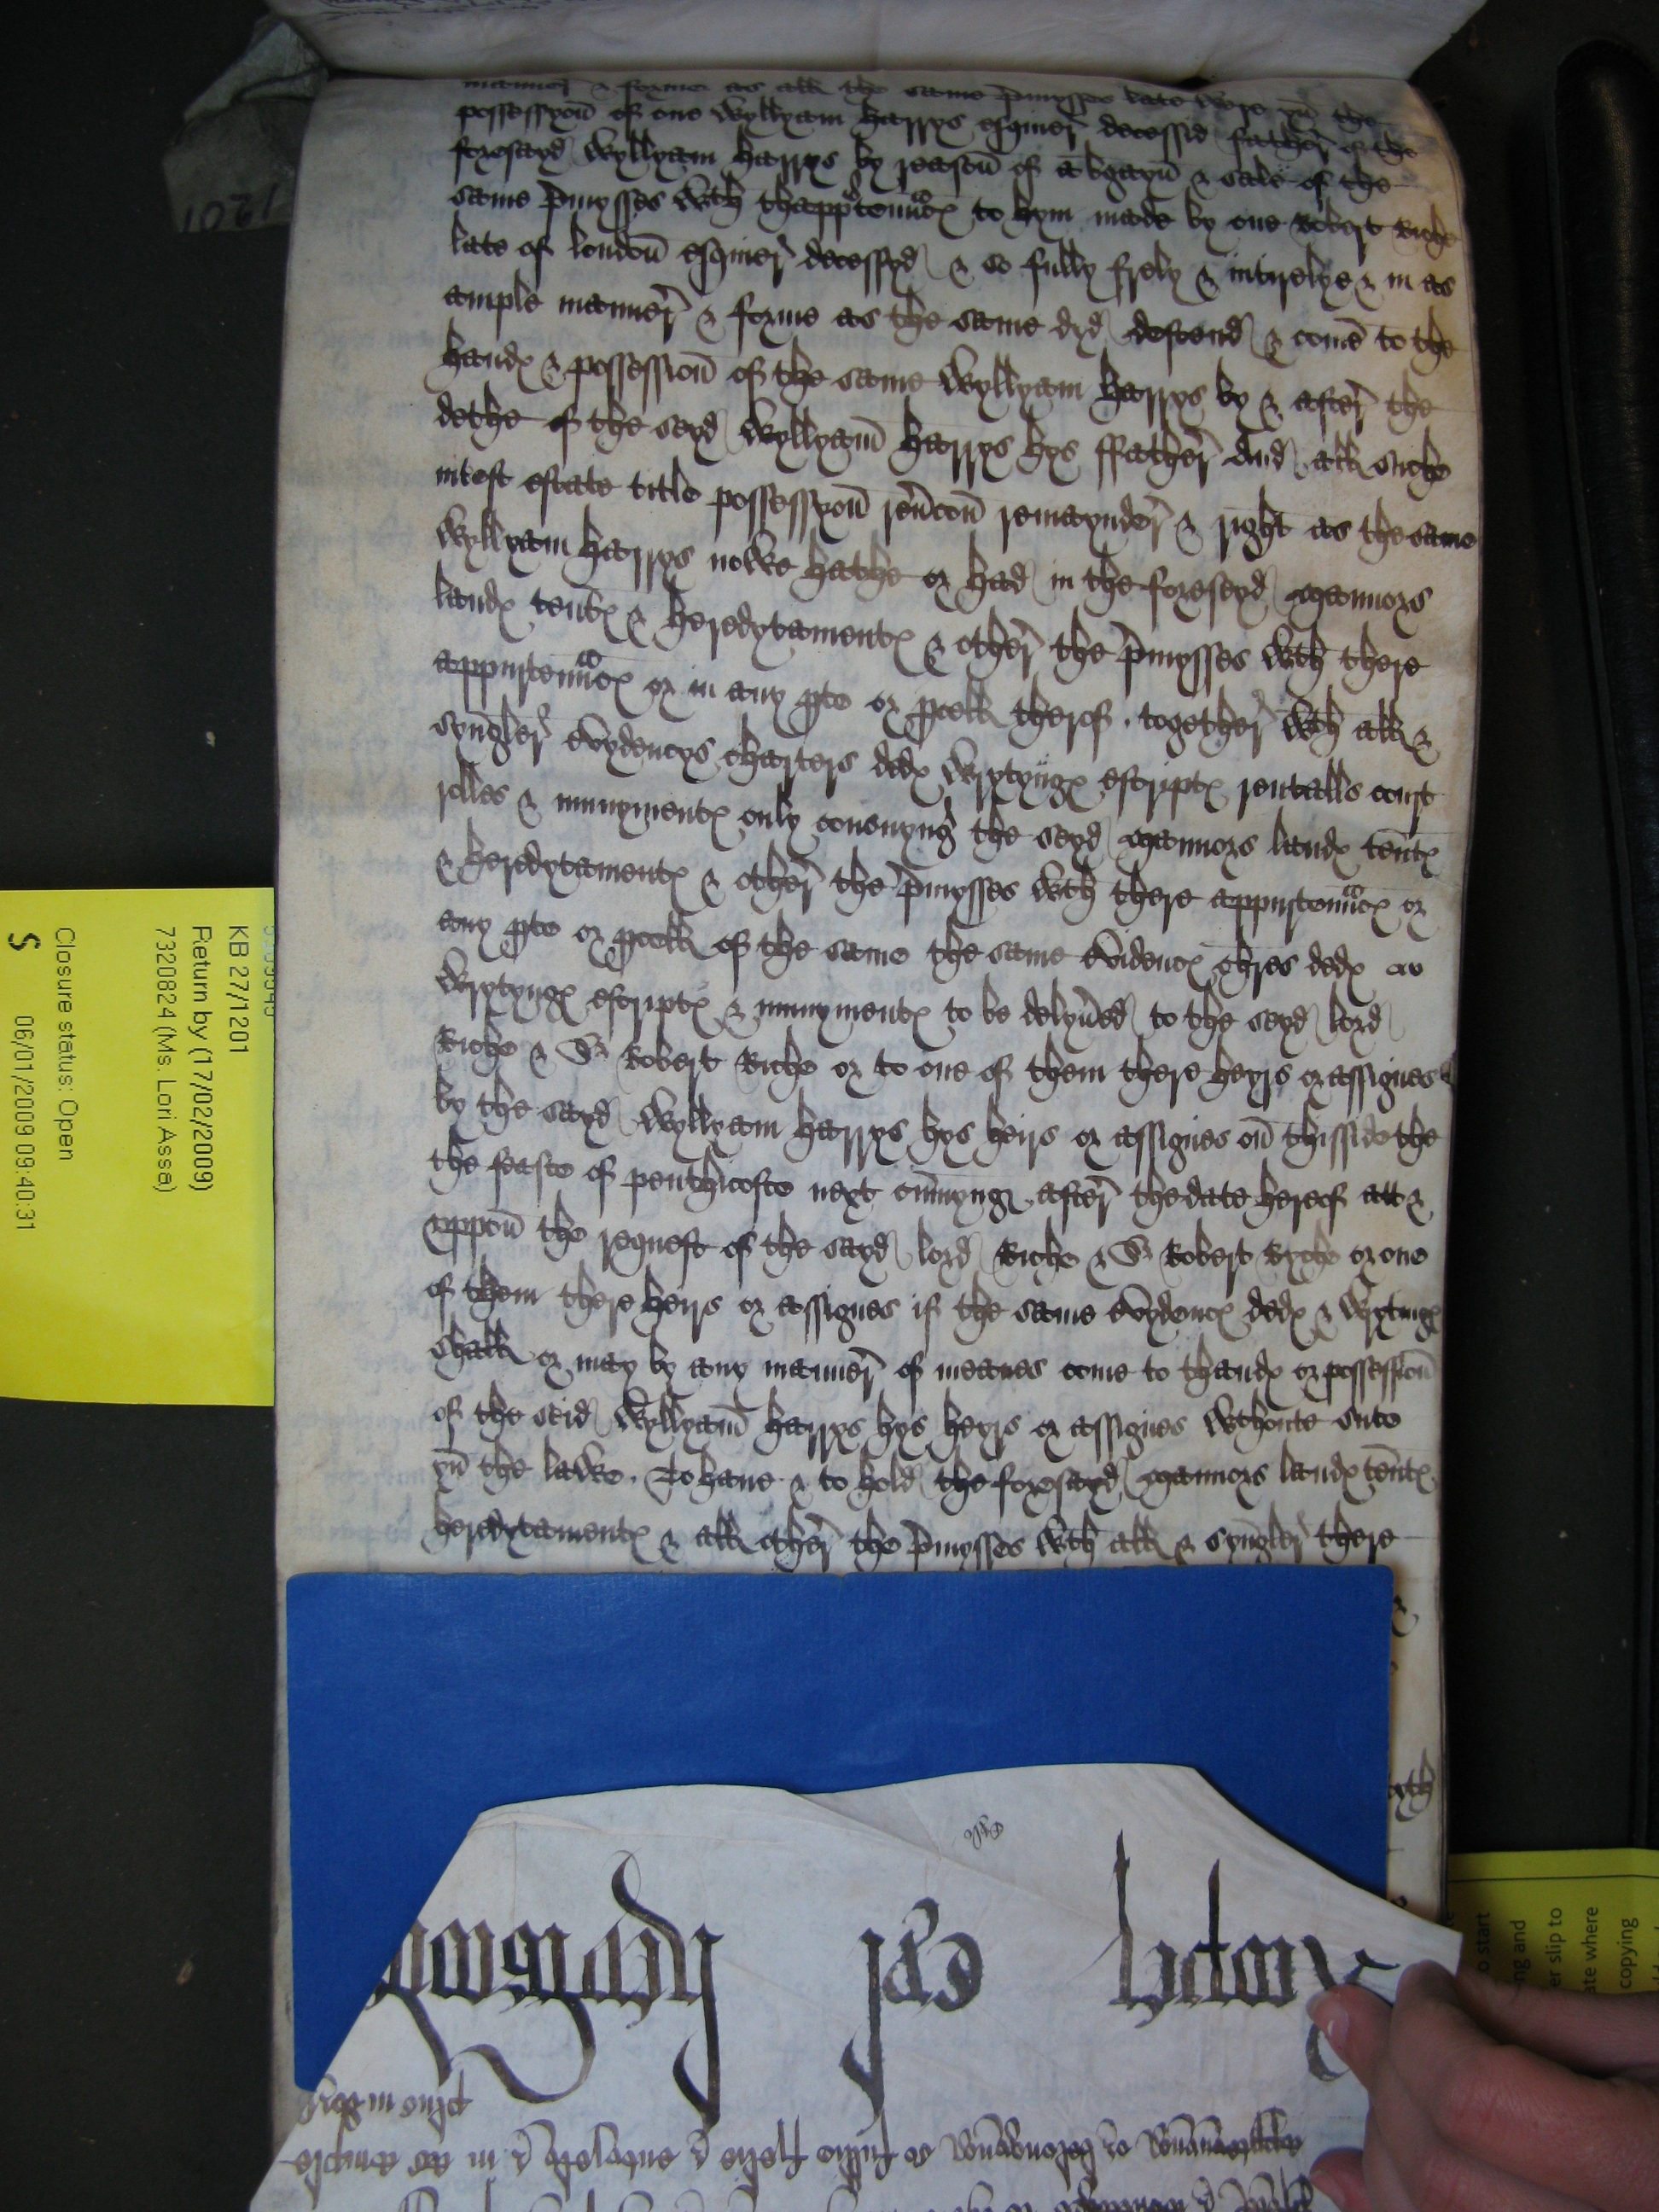 manner & forme as all the same p̄mysses late were yn the
possessyon̄ of one Wyllyam Harrys esquier decessid father of the
foresayd Wyllyam Harrys by reason̄ of a bgayn̄ & sale of the
same p̄mysses wth thappten̄ncꝭ to hym made by one Robert Riche
late of London̄ esquier decessyd & so fully frely & intirelye & in as
ample manner & forme as the same dyd descend & come to the
handꝭ & possession̄ of the same Wyllyam Harrys by & after the
dethe of the seyd Wyllyam̄ Harrys hys ffather And all suche
intest estate title possessyon̄ reṽcon̄ remaynder & right as the same
Wyllyam Harrys nowe hathe or had in the foreseyd mannors
landꝭ tent̄ꝭ & heredytamentꝭ & other the p̄mysses wth there
appurten̄ncꝭ or in any pte or pcell therof . together wth all &
syngler evydencys charters dedꝭ wrytyngꝭ escriptꝭ rentalls court
rolles & munymentꝭ only conc̄nyng the seyd mannors landꝭ ten̄tꝭ
& heredytamentꝭ & other the p̄mysses wth there appurten̄ncꝭ or
any pte or pcell of the same the same evidencꝭ chres dedꝭ
wrytyngꝭ escriptꝭ & munymentꝭ to be delyṽed to the seyd lord
Riche & Sr Robert Riche or to one of them there heyrs or assignes
by the sayd Wyllyam Harrys hys heirs or assignes on̄ thisside the
the feaste of penthicoste next cōmyng after the date hereof att &
uppon̄ the request of the sayd lord Riche & Sr Robert Ryche or one
of them there heirs or assignes if the same evydencꝭ dedꝭ & wrytingꝭ
shall or may by any manner of meanes come to thandꝭ or possession̄
of the seid Wyllyam̄ Harrys hys heyrs or assignes wthoute sute
yn̄ the lawe . To have & to hold the foresayd mannors landꝭ ten̄tꝭ
heredytamentꝭ & all other the p̄mysses wth all & syngler there
1201
KB 27/1201
Return by (17/02/2009)
7320824 (Ms. Lori Assea)
Closure status: Open
S
06/01/2009 09:40:31
o start
ng and
er slip to
ate where
copying